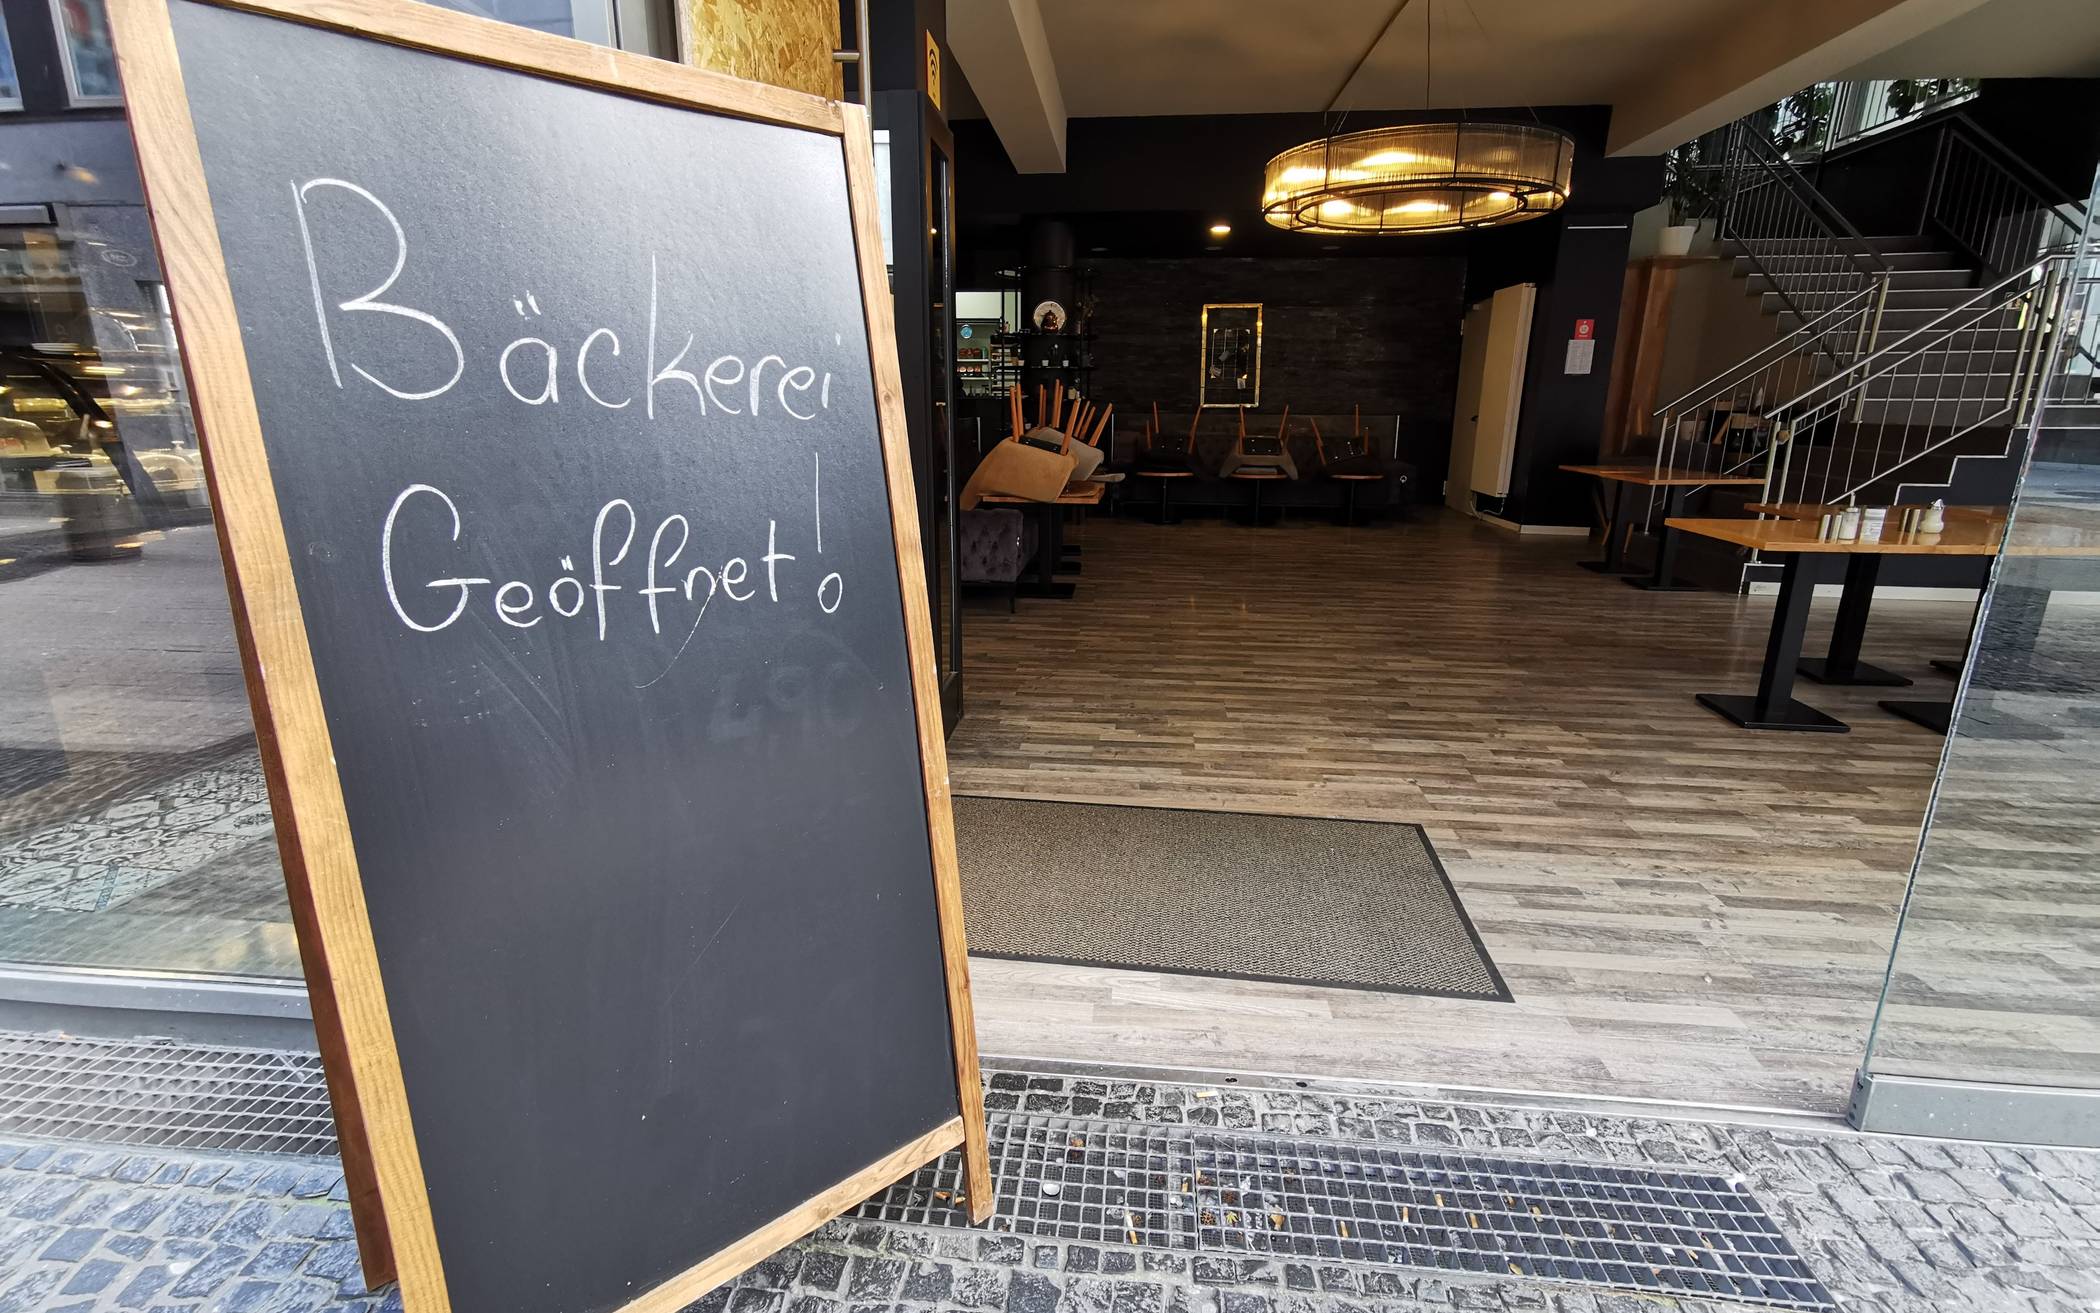 Bäckerei
Geöffnet!
4,90